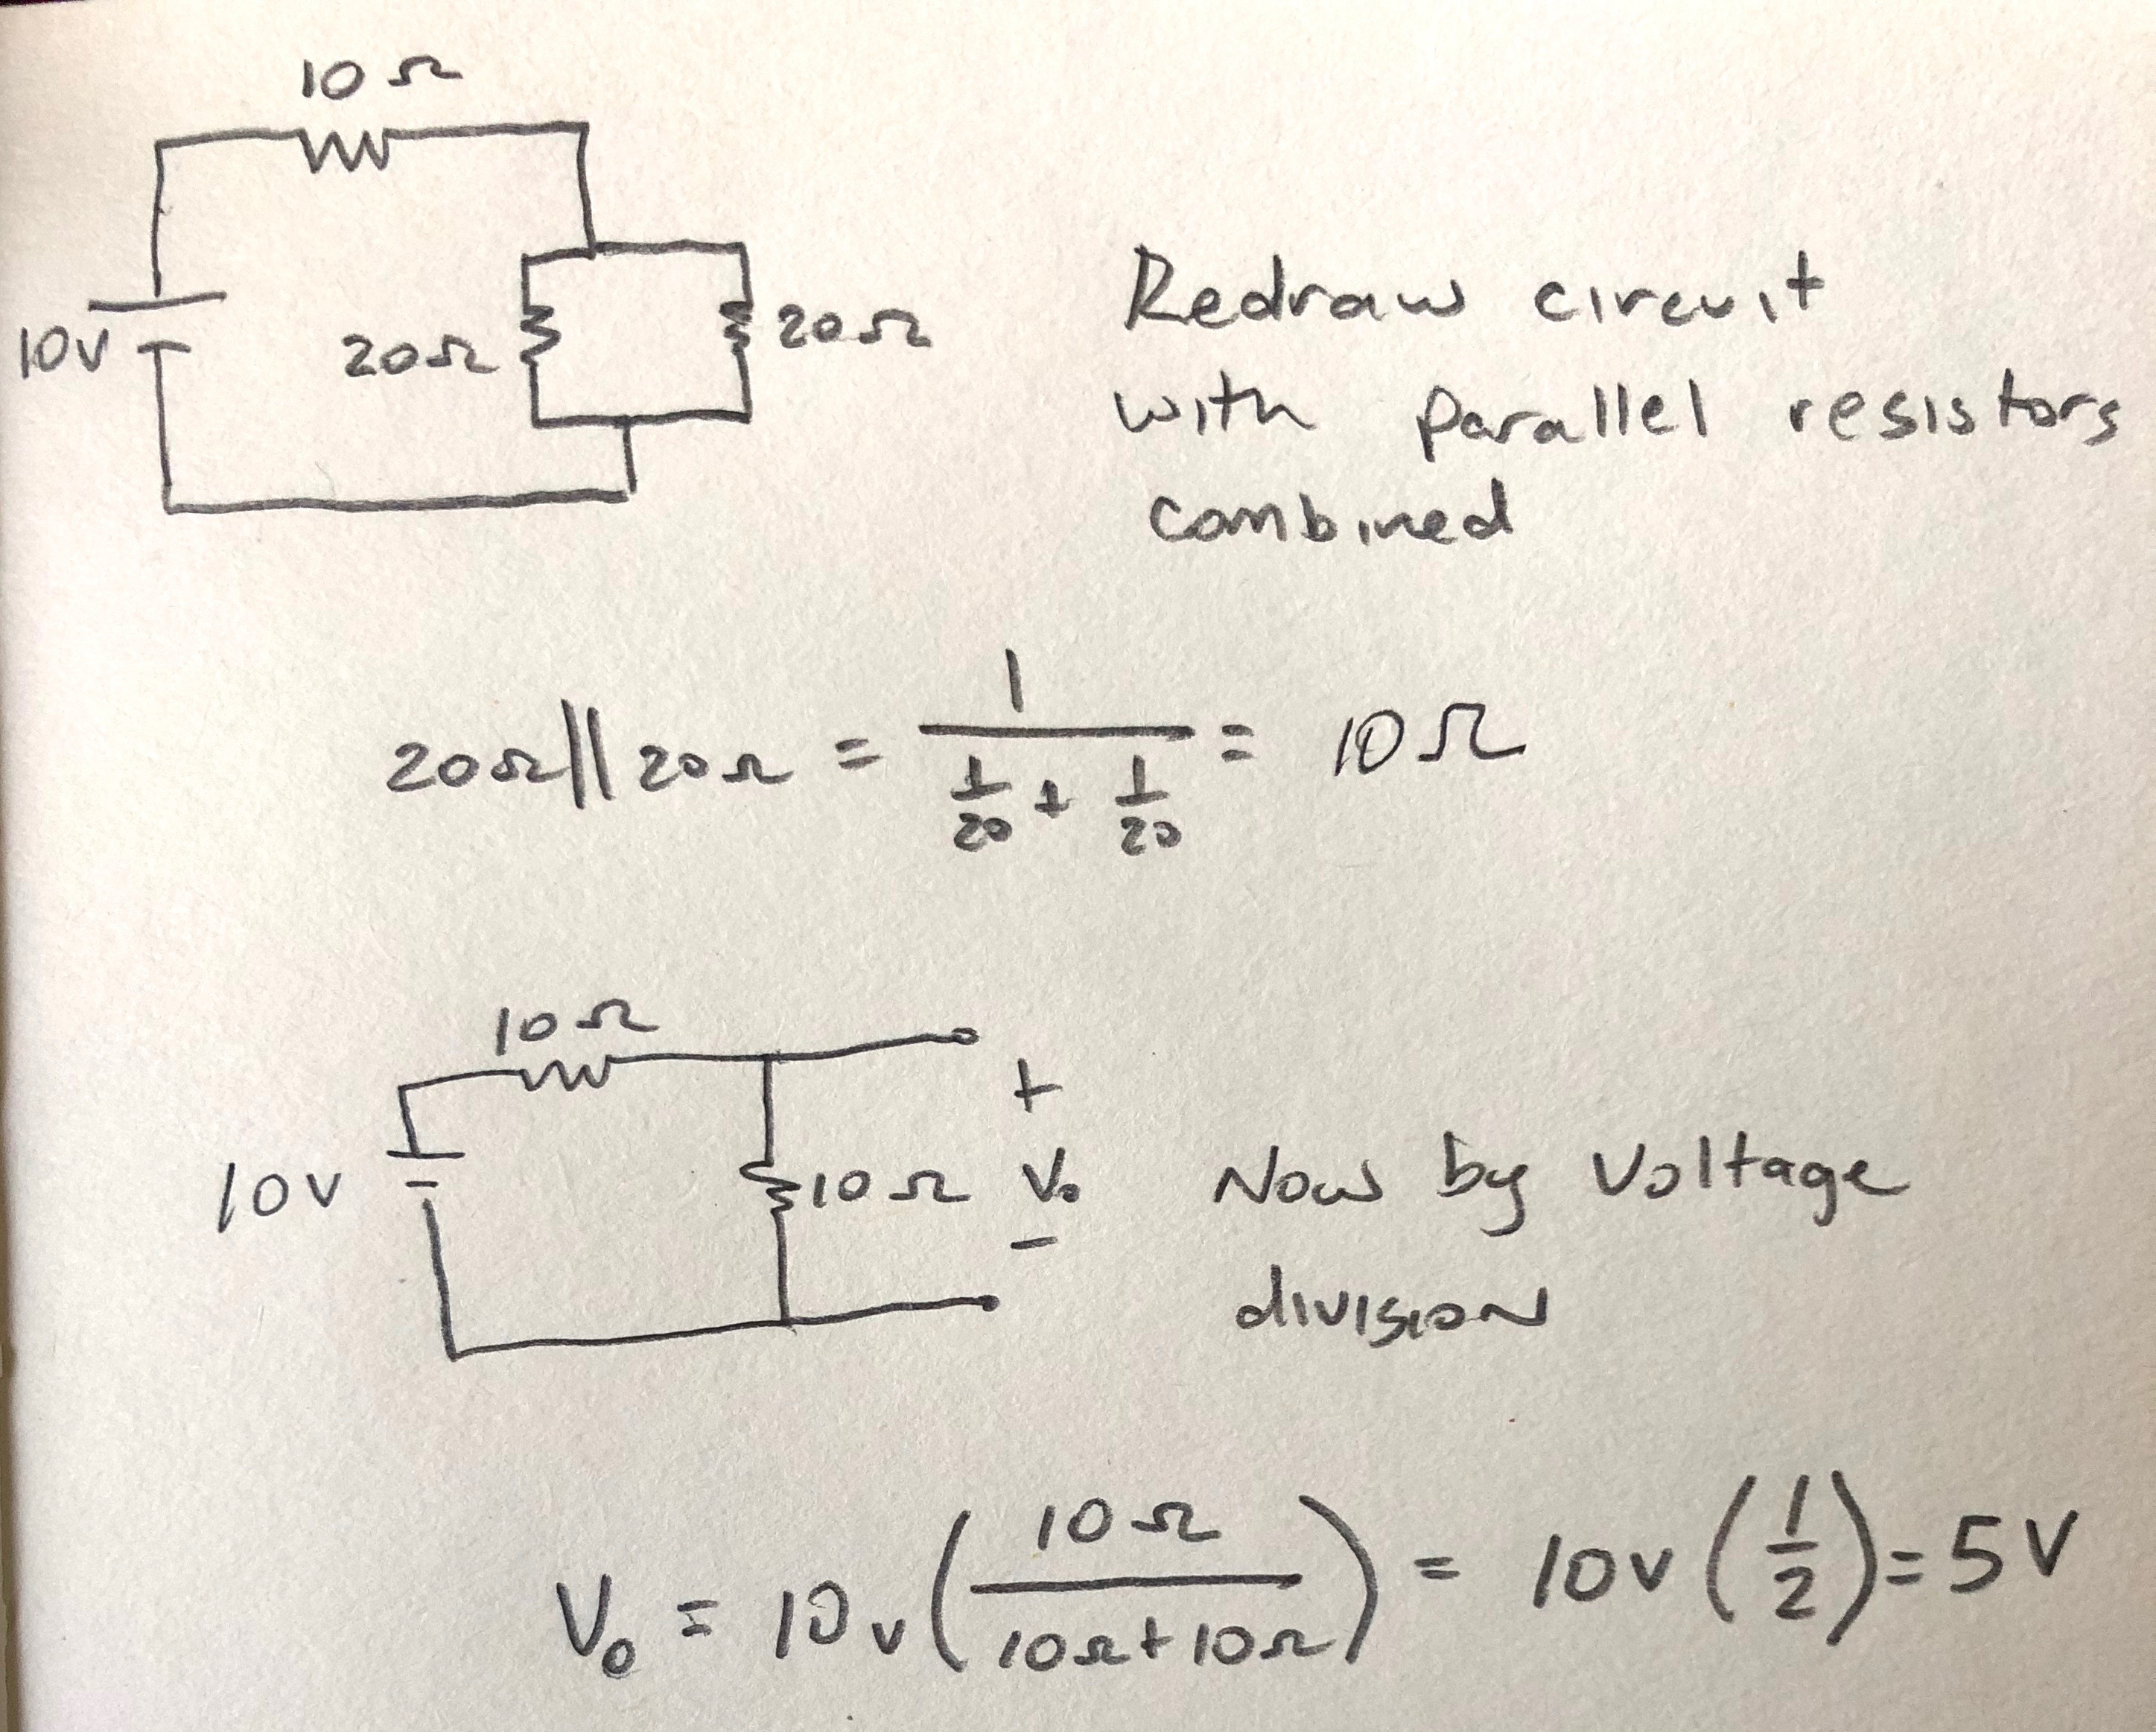 10 Ω
10V
20Ω
20Ω
Redraw circuit
with parallel resistors
combined
20Ω||20Ω = 1/(1/20 + 1/20) = 10Ω
10Ω
10V
10Ω
+
V₀
−
Now by Voltage
division
V₀ = 10V (10Ω/(10Ω+10Ω)) = 10V (1/2) = 5V